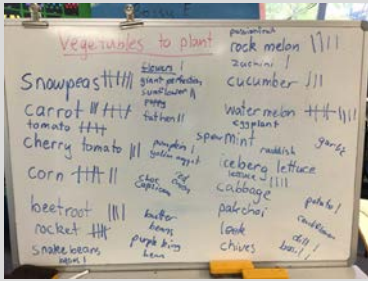 Vegetables to plant
Snowpeas
carrot
tomato
cherry tomato
corn
beetroot
rocket
snake beans
flowers
giant perfection
sunflower
poppy
fat hen
pumpkin
golden nugget
choc capsicum
red onion
butter beans
purple king bean
passionfruit
rock melon
zuchini
cucumber
watermelon
eggplant
spearmint
garlic
raddish
iceberg lettuce
lettuce
cabbage
pakchoi
leek
chives
potato
cauliflower
dill
basil